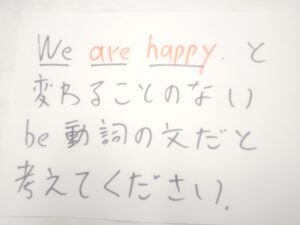 We are happy. と
変わることのない
be 動詞の文だと
考えてください.